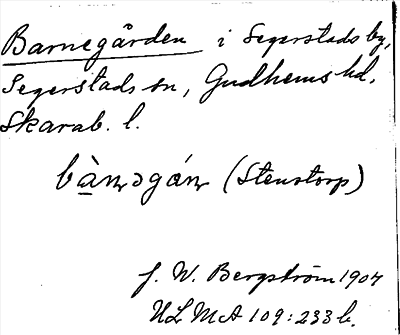 Barnegården i Segerstads by,
Segerstads sn, Gudhems hd,
Skarab. l.
bàṇəgáṇ (Stenstorp)
J. W. Bergström 1904
ULMA 109:233 b.